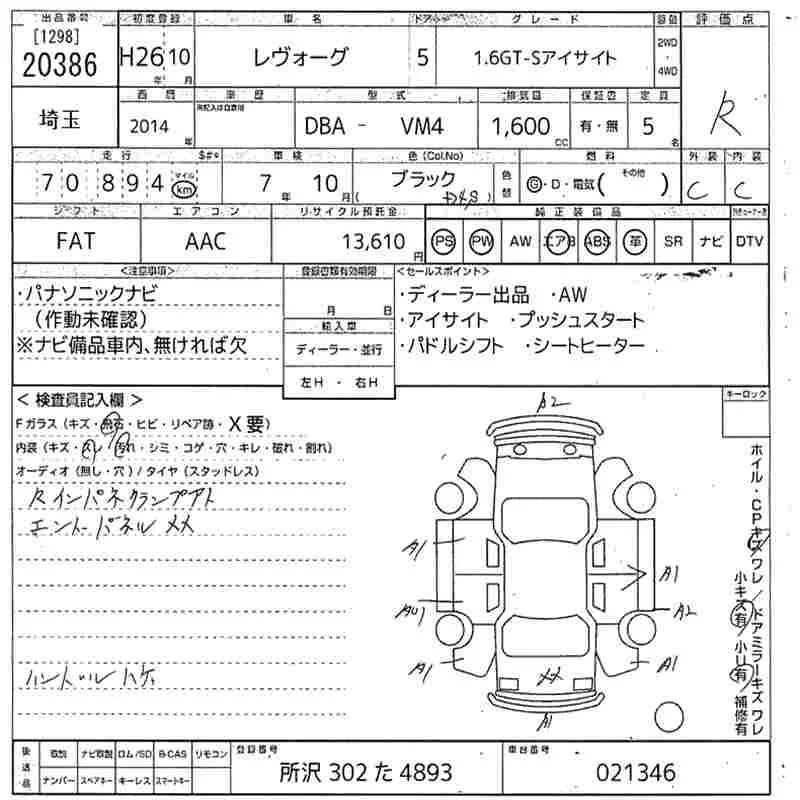 出品番号 初度登録 車名 ドア グレード 評価点
[1298]
20386 H26 10 レヴォーグ 5 1.6GT-Sアイサイト 2WD・4WD
年 月
埼玉 西暦 車歴 型式 排気量 保証書 定員 R
未記入は自家用
2014年 DBA - VM4 1,600cc 有・無 5名
走行 $#* 車検 色 (Col.No) 燃料 外装 内装
70894 マイル km 7年 10月 ブラック ( D4S ) 色替 G・D・電気( その他 ) C C
シフト エアコン リサイクル預託金 純正装備品
FAT AAC 13,610円 PS PW AW エアB ABS 革 SR ナビ DTV
<注意事項> 登録書類有効期限 <セールスポイント>
・パナソニックナビ ・ディーラー出品 ・AW
(作動未確認) 月 日 ・アイサイト ・プッシュスタート
※ナビ備品車内、無ければ欠 輸入車 ・パドルシフト ・シートヒーター
ディーラー・並行
左H・右H
<検査員記入欄> キーロック
Fガラス (キズ・飛石・ヒビ・リペア跡・X要)
内装 (キズ・スレ・汚れ・シミ・コゲ・穴・キレ・破れ・割れ)
オーディオ (無し・穴) / タイヤ (スタッドレス)
Rインパネクランプアト
エンドパネル XX
ハンドルハゲ
A2
A1 A1
AU1 A2
A1 XX A1
A1
ホイル・CPキズ/ワレ/ドアミラーキズワレ
小キズ有/小U有/補修有
後送品 取説 ナビ取説 ロム/SD B-CAS リモコン 登録番号 車台番号
ナンバー スペアキー キーレス スマートキー 所沢 302 た 4893 021346